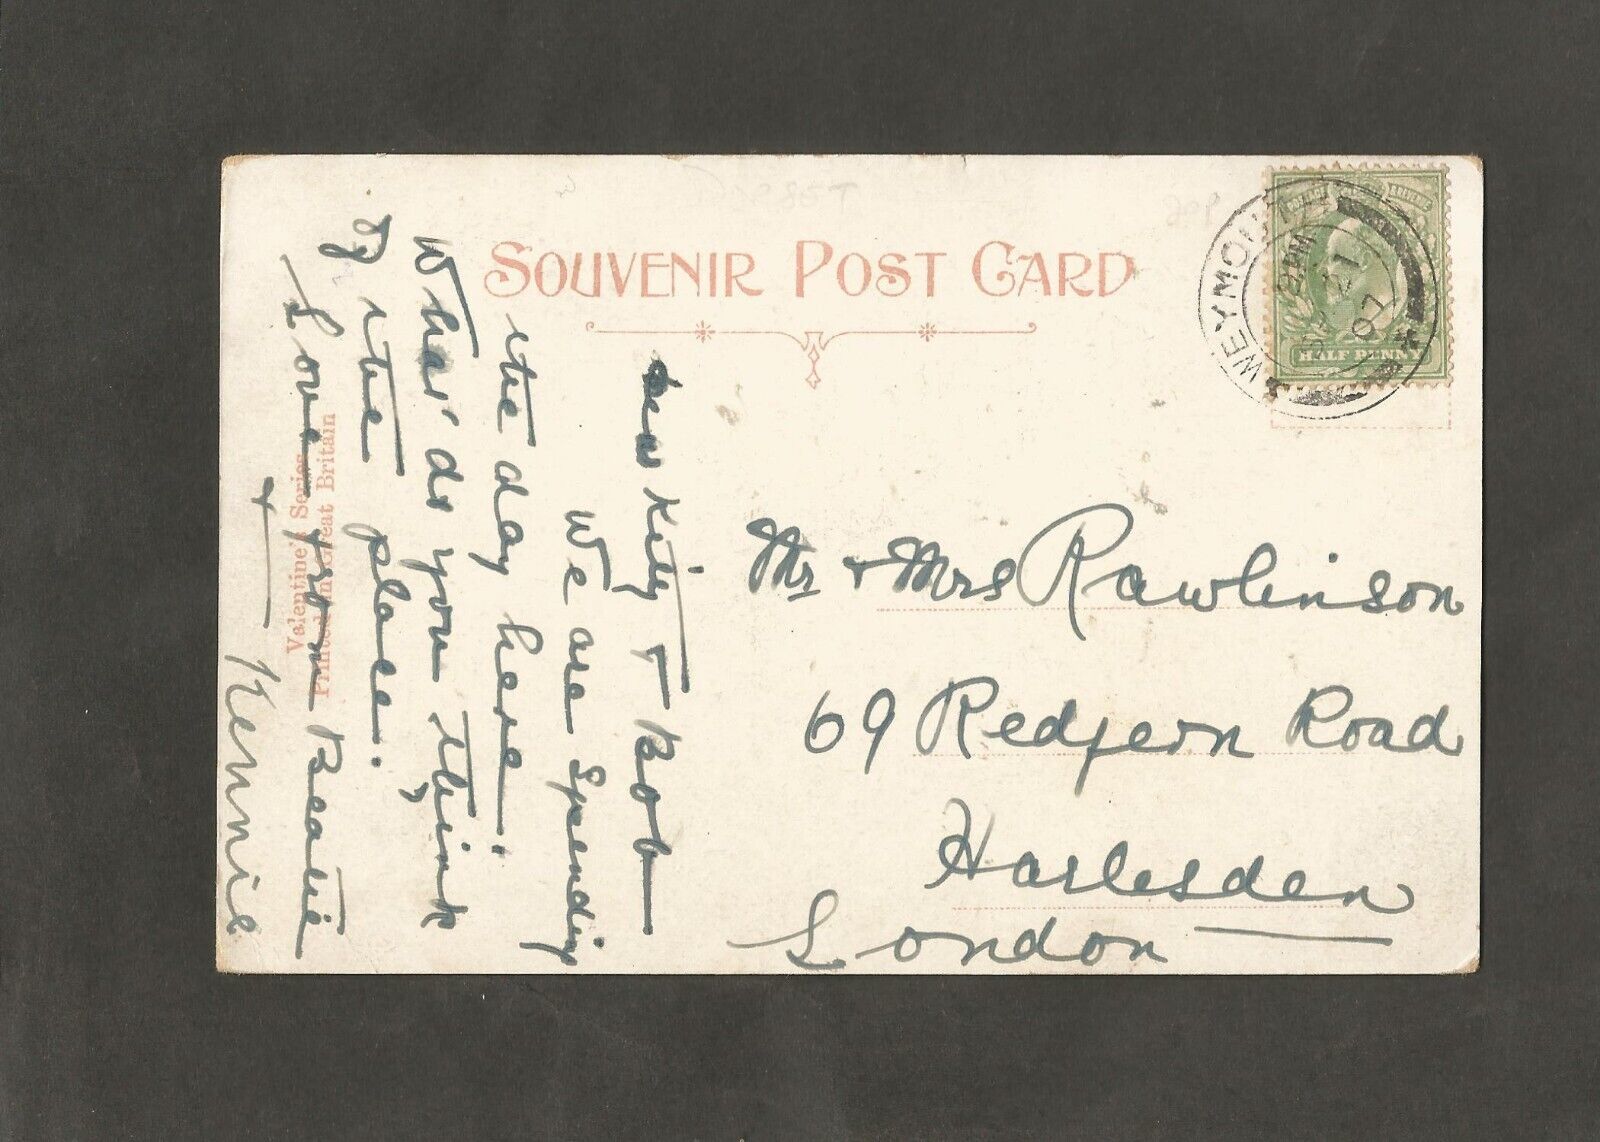 SOUVENIR POST CARD
WEYMOUTH
8 PM
21
07
HALF PENNY
Mr & Mrs Rawlinson
69 Redfern Road
Harlesden
London
Kity & Bob
We are Spending
the day here.
What do you think
of the place.
Love from Beatie
+ Kennie
Valentine's Series
Printed in Great Britain